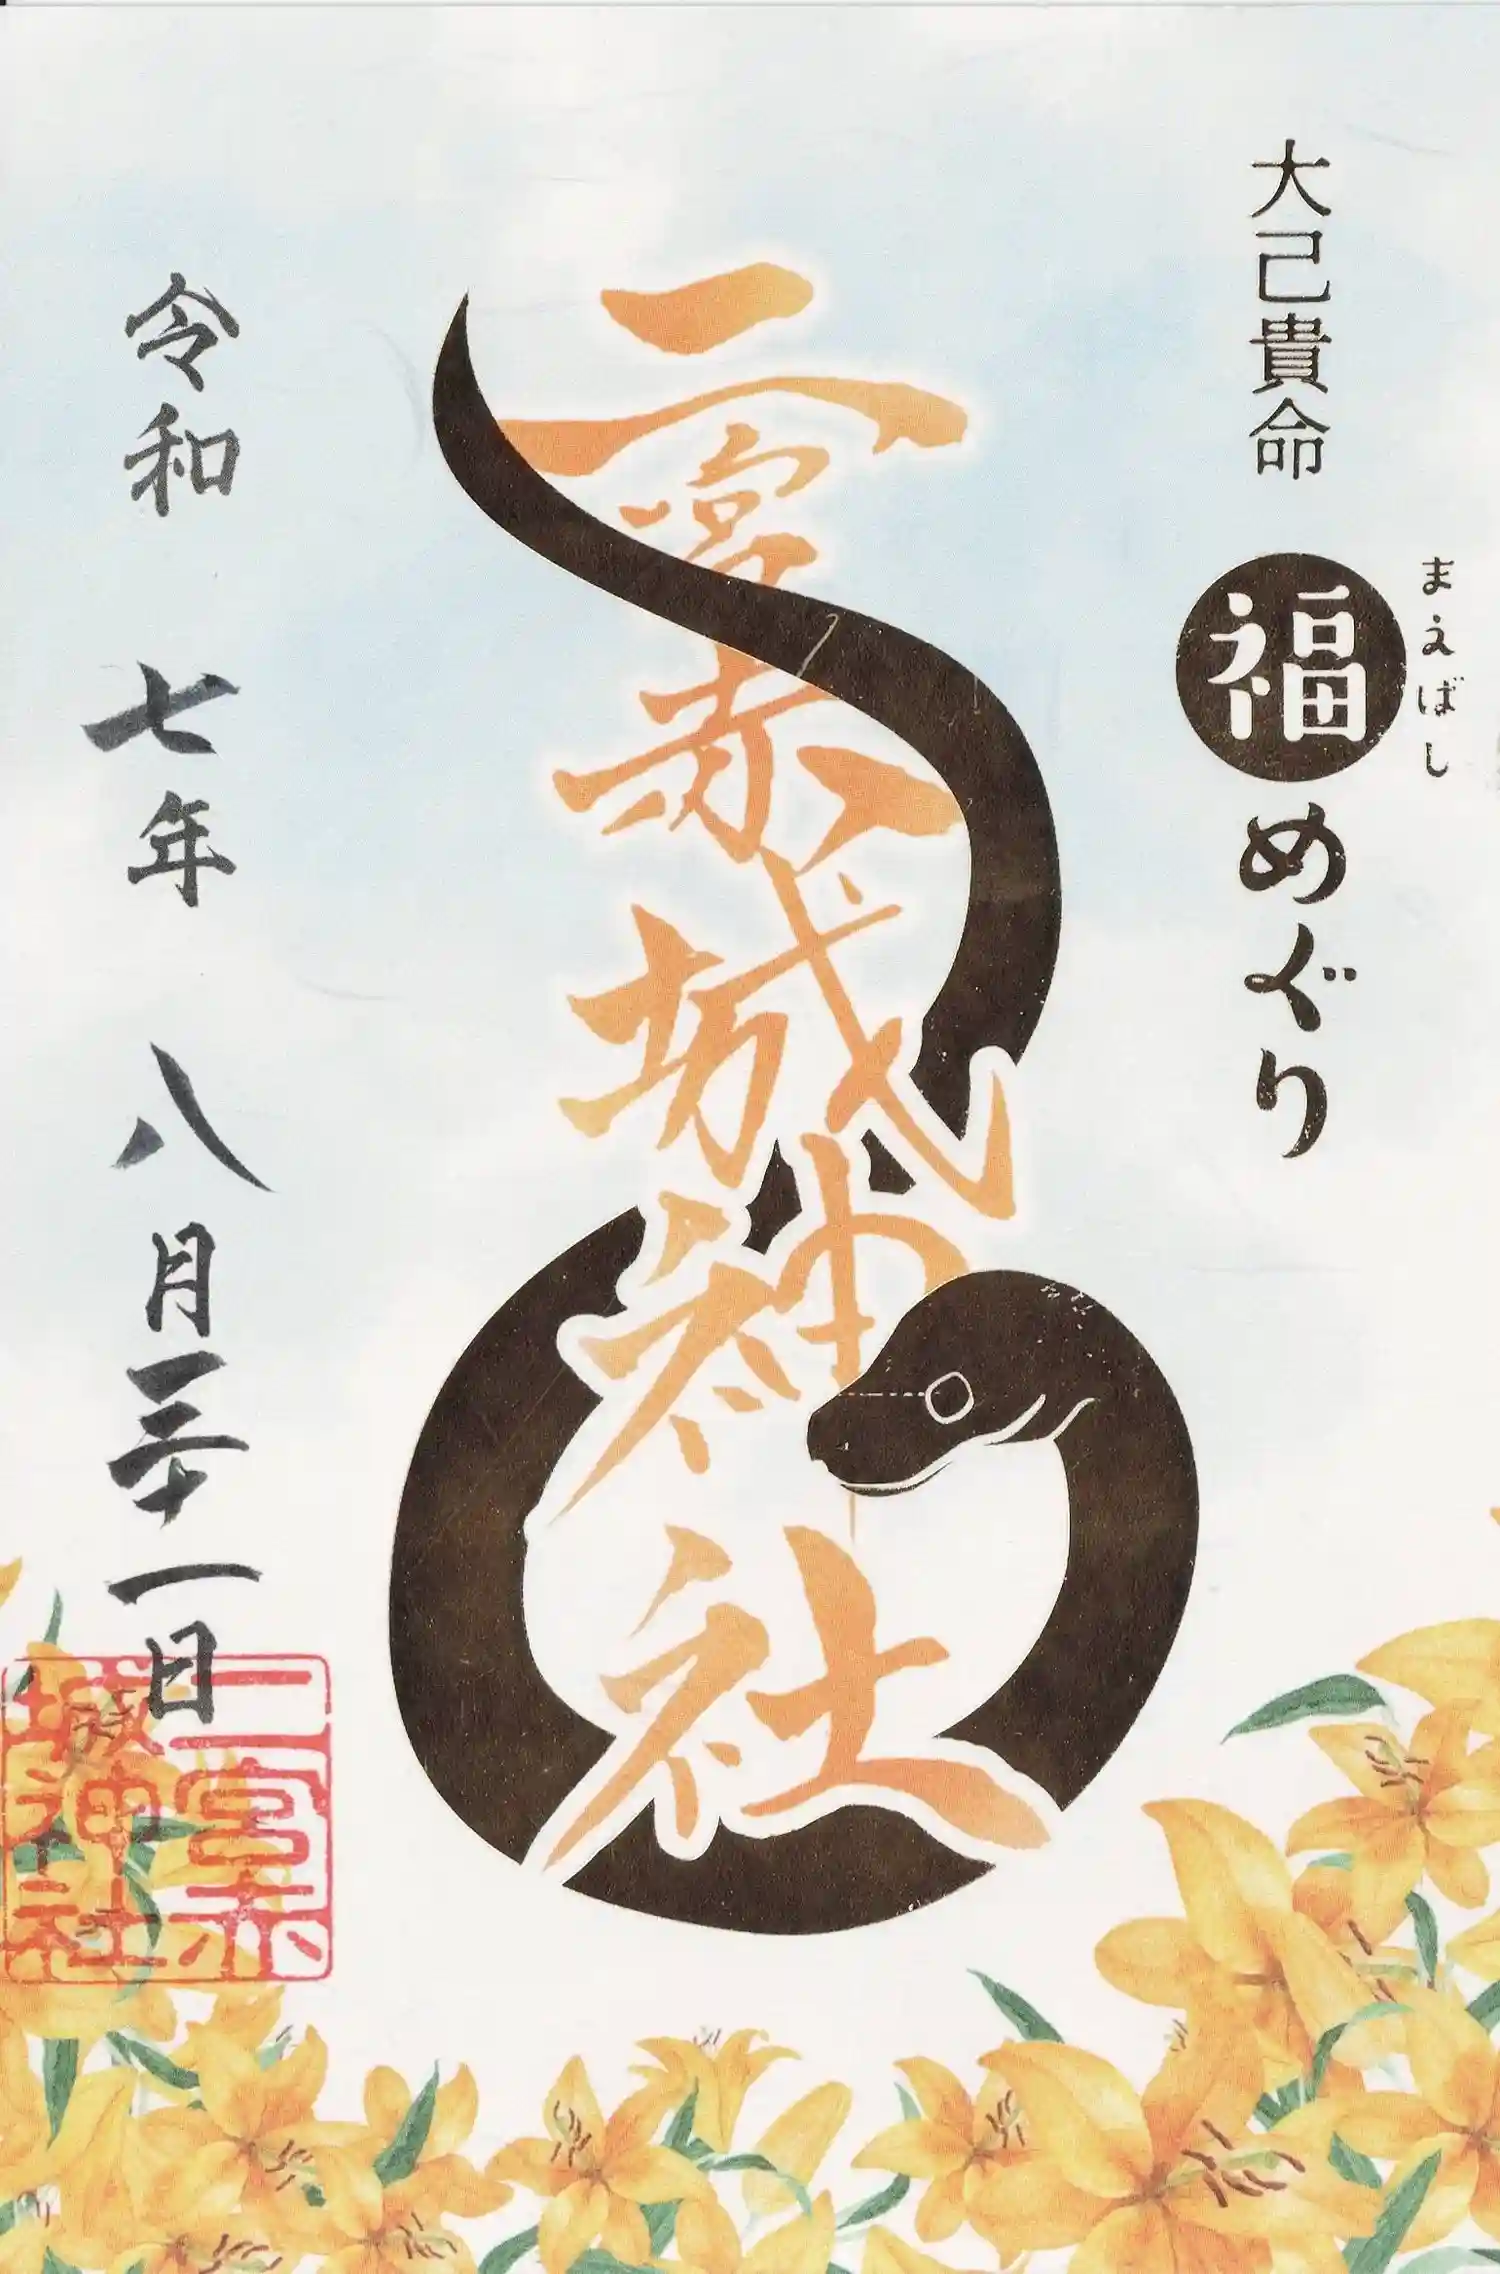 大己貴命
まえばし
福めぐり
二宮赤城神社
令和七年八月三十一日
二宮赤
城神社